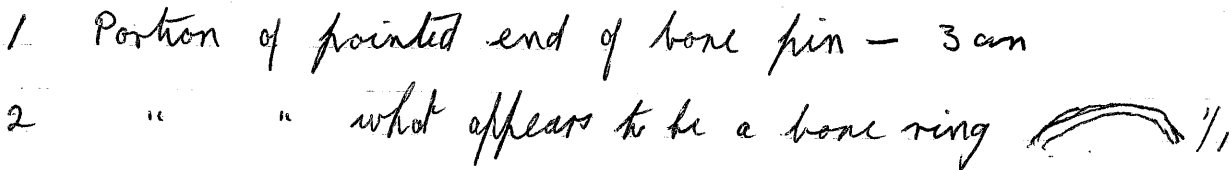 1 Portion of pointed end of bone pin — 3 cm
2 " " what appears to be a bone ring 1/1